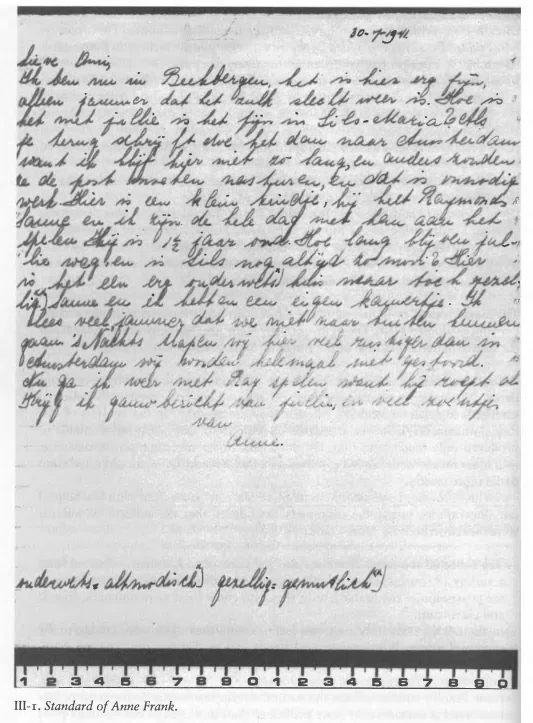 30-7-1941
Lieve Omi,
Ik ben nu in Beekbergen, het is hier erg fijn,
alleen jammer dat het zulk slecht weer is. Hoe is
het met jullie is het fijn in Sils-Maria? Als
je terug schrijft doe het dan naar Amsterdam
want ik blijf hier niet zo lang, en anders zouden
ze de post moeten nasturen, en dat is onnodig
werk. Hier is een klein kindje, hij heet Raymond
Sanne en ik zijn de hele dag met hem aan het
spelen. Hij is 1½ jaar oud. Hoe lang blijven jul-
lie weg, en is Sils nog altijd zo mooi? Hier
is het een erg ouderwets*) huis maar toch gezel-
lig*) Sanne en ik hebben een eigen kamertje. Ik
lees veel, jammer dat we niet naar buiten kunnen
gaan 's Nachts slapen wij hier veel rustiger dan in
Amsterdam wij worden helemaal niet gestoord.
Nu ga ik weer met Ray spelen want hij roept al
Krijg ik gauw bericht van jullie, en veel zoentjes
van
Anne.
ouderwets = altmodisch*) gezellig = gemütlich**)
1 2 3 4 5 6 7 8 9 0 1 2 3 4 5 6 7 8 9 0
III-1. Standard of Anne Frank.